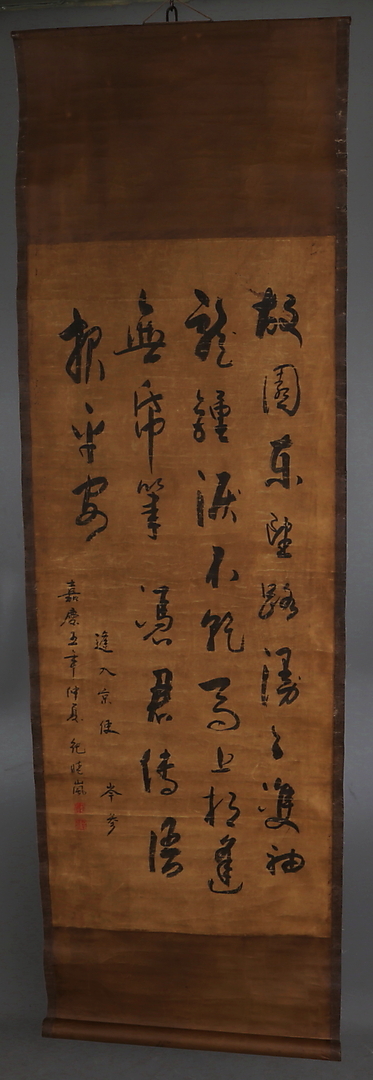 故園東望路漫漫雙袖
龍鍾淚不乾馬上相逢
無帋筆憑君傳語
報平安
逢入京使 岑參
嘉慶五年仲夏 紀曉嵐